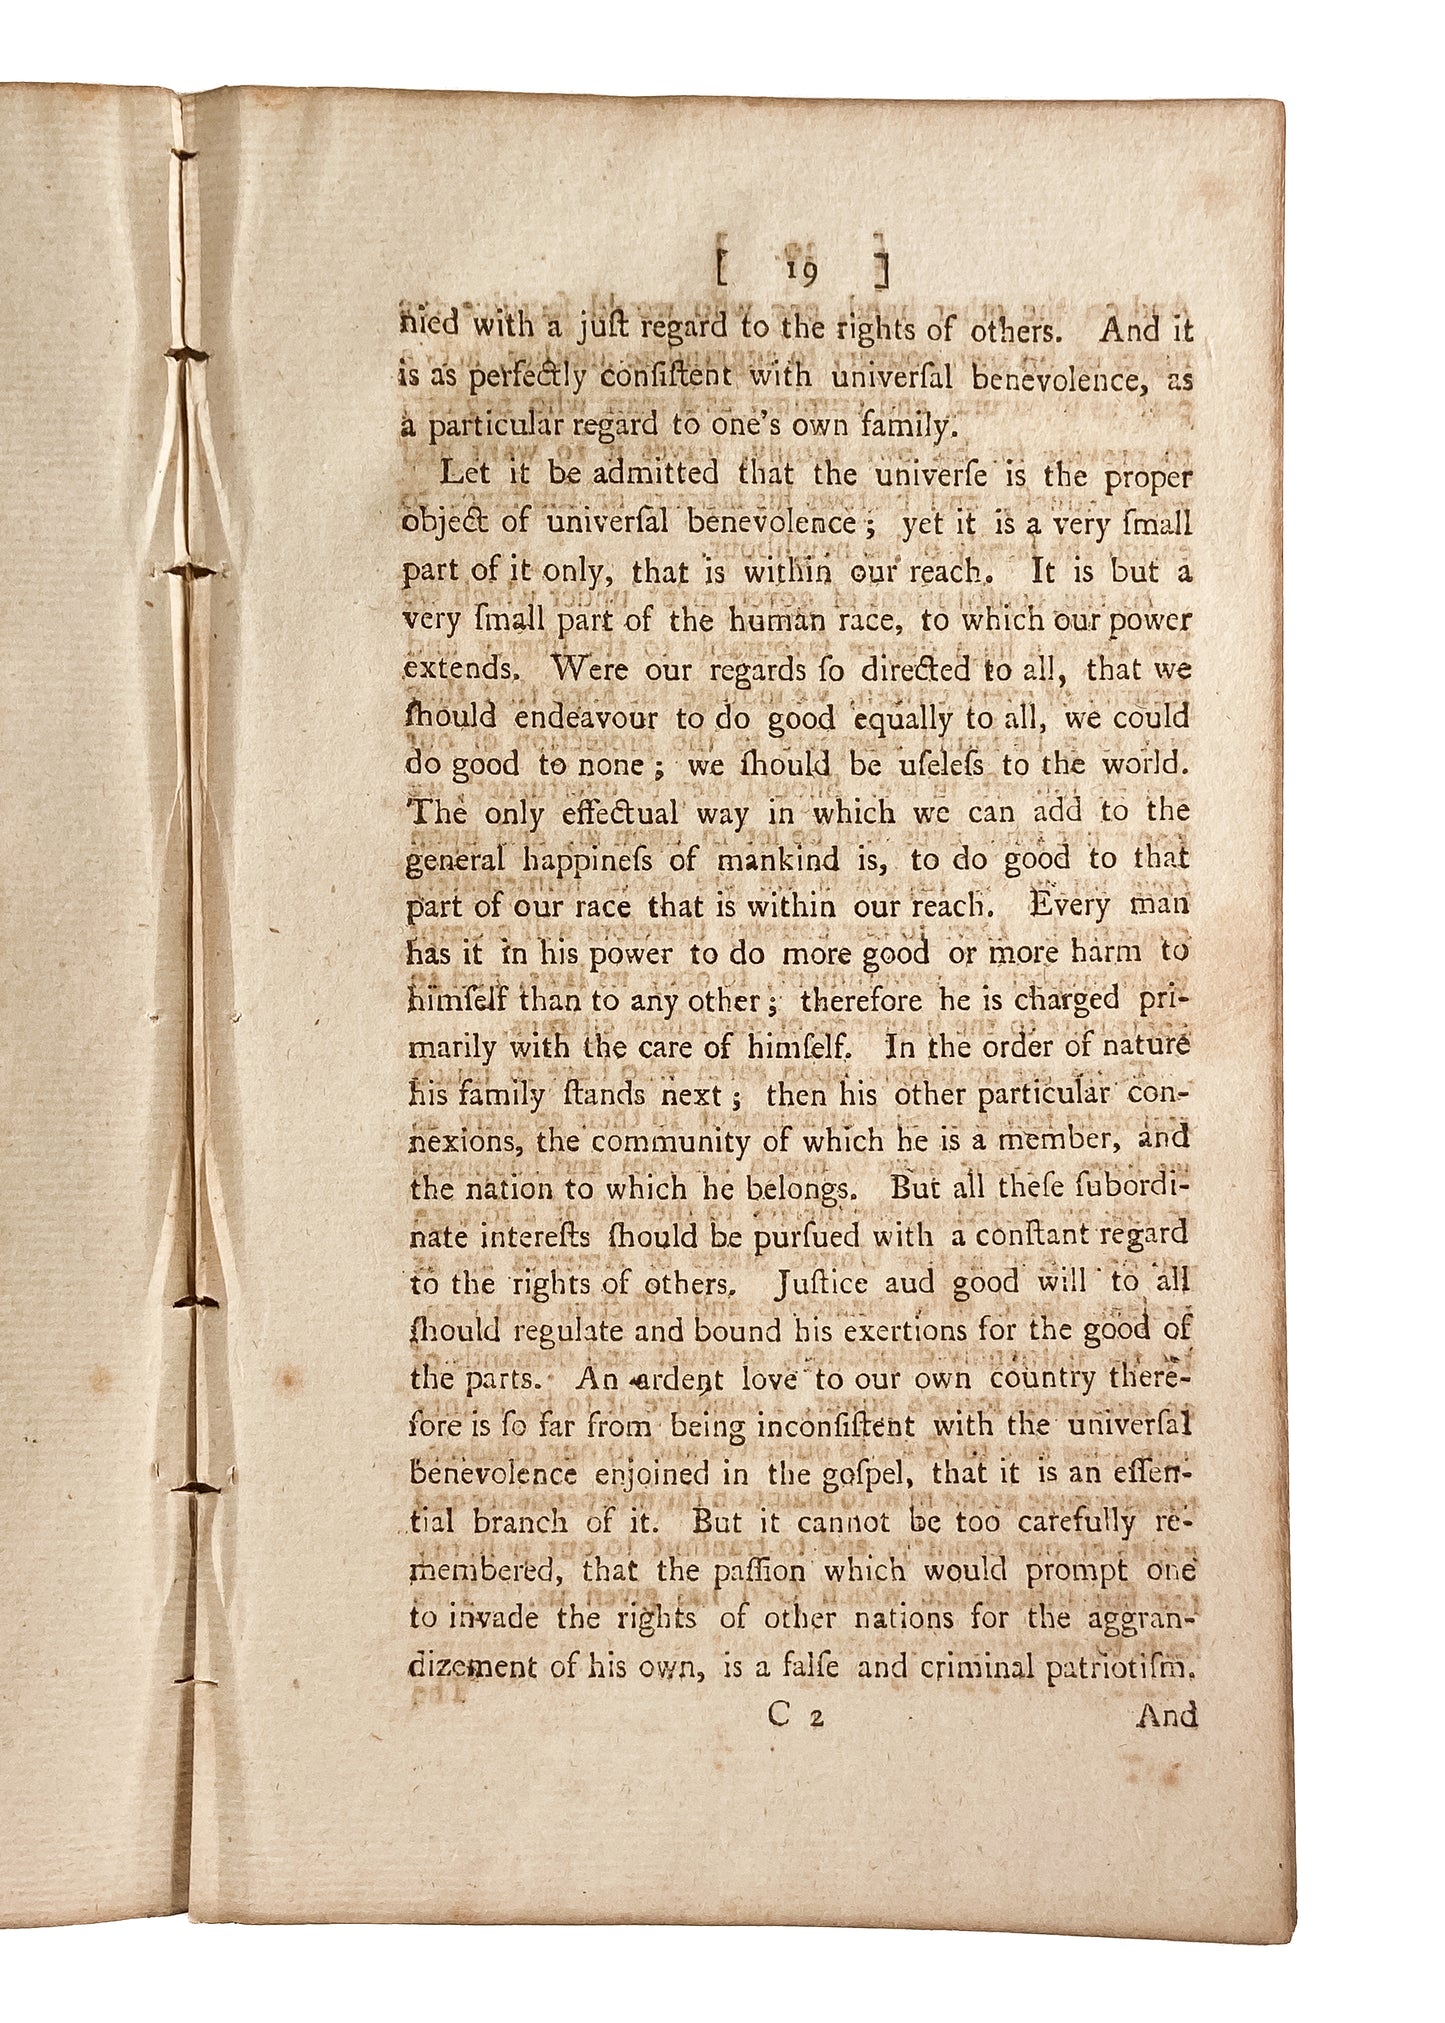 [ 19 ]
nied with a juſt regard to the rights of others. And it
is as perfectly conſiſtent with univerſal benevolence, as
a particular regard to one's own family.
Let it be admitted that the univerſe is the proper
object of univerſal benevolence; yet it is a very ſmall
part of it only, that is within our reach. It is but a
very ſmall part of the human race, to which our power
extends. Were our regards ſo directed to all, that we
ſhould endeavour to do good equally to all, we could
do good to none; we ſhould be uſeleſs to the world.
The only effectual way in which we can add to the
general happineſs of mankind is, to do good to that
part of our race that is within our reach. Every man
has it in his power to do more good or more harm to
himſelf than to any other; therefore he is charged pri-
marily with the care of himſelf. In the order of nature
his family ſtands next; then his other particular con-
nexions, the community of which he is a member, and
the nation to which he belongs. But all theſe ſubordi-
nate intereſts ſhould be purſued with a conſtant regard
to the rights of others. Juſtice aud good will to all
ſhould regulate and bound his exertions for the good of
the parts. An ardent love to our own country there-
fore is ſo far from being inconſiſtent with the univerſal
benevolence enjoined in the goſpel, that it is an eſſen-
tial branch of it. But it cannot be too carefully re-
membered, that the paſſion which would prompt one
to invade the rights of other nations for the aggran-
dizement of his own, is a falſe and criminal patriotiſm.
C 2 And